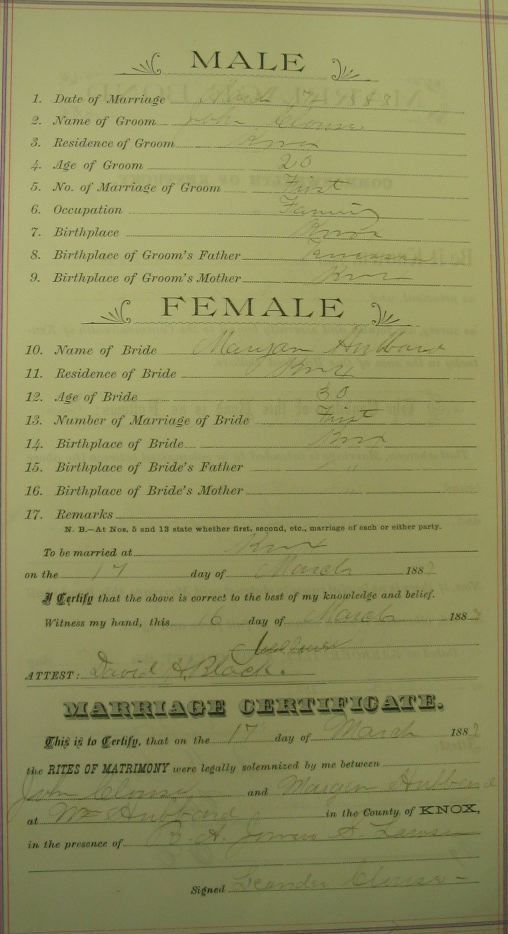 MALE
1. Date of Marriage March 17 1888
2. Name of Groom John Clouse
3. Residence of Groom Knox
4. Age of Groom 20
5. No. of Marriage of Groom First
6. Occupation
7. Birthplace Knox
8. Birthplace of Groom's Father
9. Birthplace of Groom's Mother Knox
FEMALE
10. Name of Bride Maryan Hubbard
11. Residence of Bride Knox
12. Age of Bride 30
13. Number of Marriage of Bride First
14. Birthplace of Bride Knox
15. Birthplace of Bride's Father
16. Birthplace of Bride's Mother
17. Remarks
N. B.—At Nos. 5 and 13 state whether first, second, etc., marriage of each or either party.
To be married at Knox
on the 17 day of March 188
I Certify that the above is correct to the best of my knowledge and belief.
Witness my hand, this 16 day of March 188
ATTEST: David H. Black.
MARRIAGE CERTIFICATE.
This is to Certify, that on the 17 day of March 188
the RITES OF MATRIMONY were legally solemnized by me between
John Clouse and Hubbard
at Wm Hubbard in the County of KNOX,
in the presence of
Signed Leander Clouse